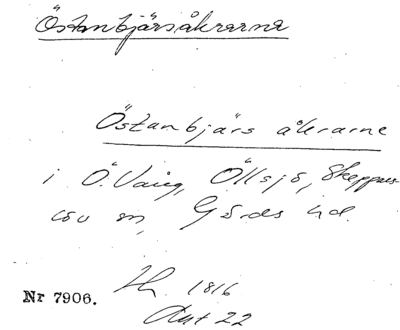 Östanbjärsåkrarna
Östanbjärs åkrarne
i Ö. Vång, Öllsjö, Skepps
löv sn, Gärds hd.
Nr 7906.
1816
Akt 22